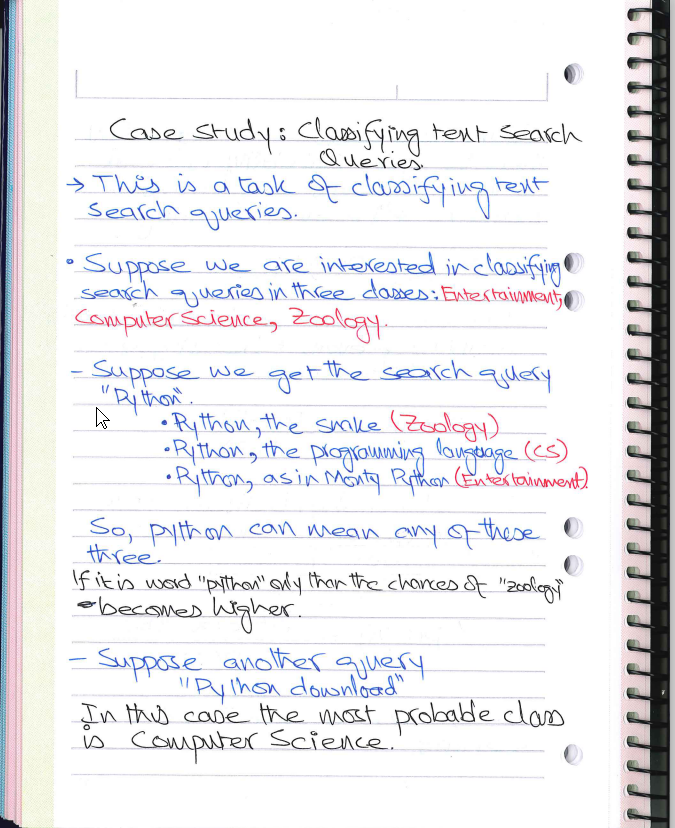 Case Study: Classifying text Search
Queries.
→ This is a task of classifying text
search queries.
• Suppose we are interested in classifying
search queries in three classes: Entertainment,
Computer Science, Zoology.
- Suppose we get the search query
"Python".
• Python, the snake (Zoology)
• Python, the programming language (CS)
• Python, as in Monty Python (Entertainment).
So, python can mean any of these
three.
If it is word "python" only than the chances of "zoology"
becomes higher.
- Suppose another query
"Python download"
In this case the most probable class
is Computer Science.